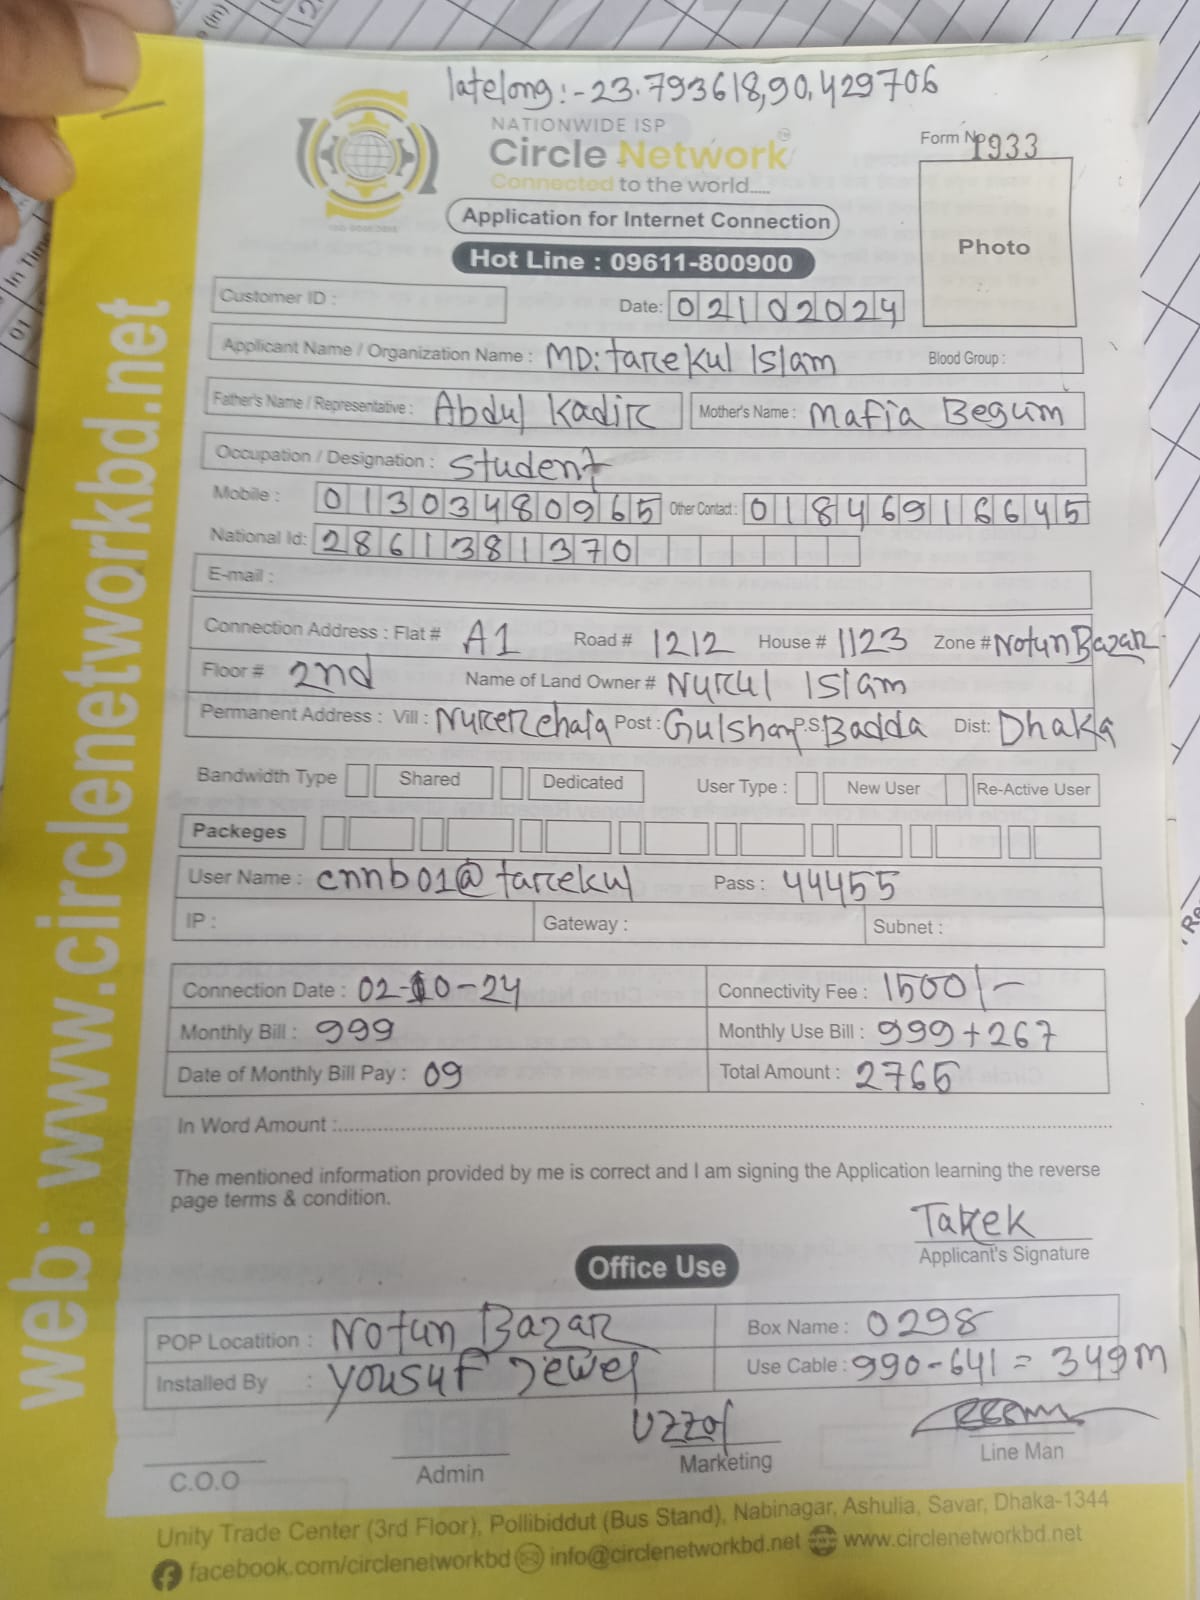 latelong:-23.793618,90.429706
NATIONWIDE ISP
Circle Network
Connected to the world.....
Form No 1933
Application for Internet Connection
Photo
Hot Line : 09611-800900
Customer ID :
Date: 02102024
Applicant Name / Organization Name : MD: tarekul Islam Blood Group :
Father's Name / Representative : Abdul Kadir Mother's Name : Mafia Begum
Occupation / Designation : Student
Mobile : 01303480965 Other Contact : 01846916645
National Id: 2861381370
E-mail :
Connection Address : Flat # A1 Road # 1212 House # 1123 Zone # Notun Bazar
Floor # 2nd Name of Land Owner # Nurul Islam
Permanent Address : Vill : Nurerchala Post : Gulshan P.S: Badda Dist: Dhaka
Bandwidth Type Shared Dedicated User Type : New User Re-Active User
Packeges
User Name : cnnb01@tarekul Pass : 44455
IP : Gateway : Subnet :
Connection Date : 02-10-24 Connectivity Fee : 1500/-
Monthly Bill : 999 Monthly Use Bill : 999+267
Date of Monthly Bill Pay : 09 Total Amount : 2765
In Word Amount :
The mentioned information provided by me is correct and I am signing the Application learning the reverse
page terms & condition.
Tarek
Applicant's Signature
Office Use
POP Locatition : Notun Bazar Box Name : 0298
Installed By : Yousuf Jewel Use Cable : 990-641 = 349m
Uzzol
C.O.O Admin Marketing Line Man
Unity Trade Center (3rd Floor), Pollibiddut (Bus Stand), Nabinagar, Ashulia, Savar, Dhaka-1344
facebook.com/circlenetworkbd info@circlenetworkbd.net www.circlenetworkbd.net
web: www.circlenetworkbd.net